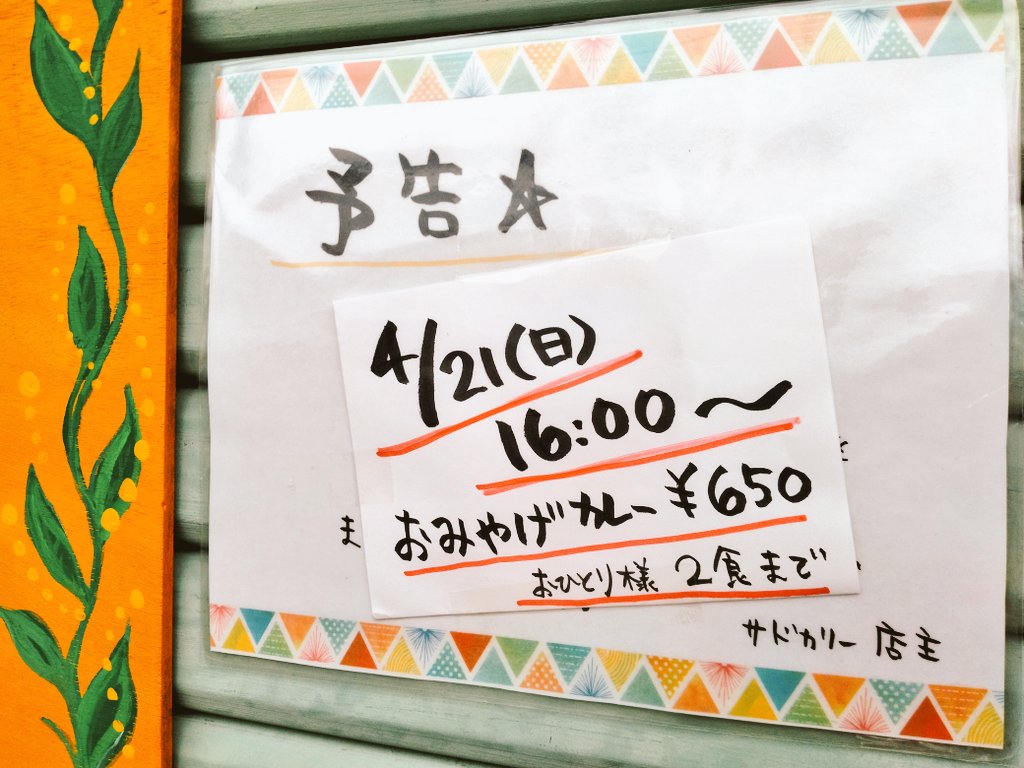 予告☆
4/21(日)
16:00〜
おみやげカレー ¥650
おひとり様 2食まで
ま
サドカリー 店主